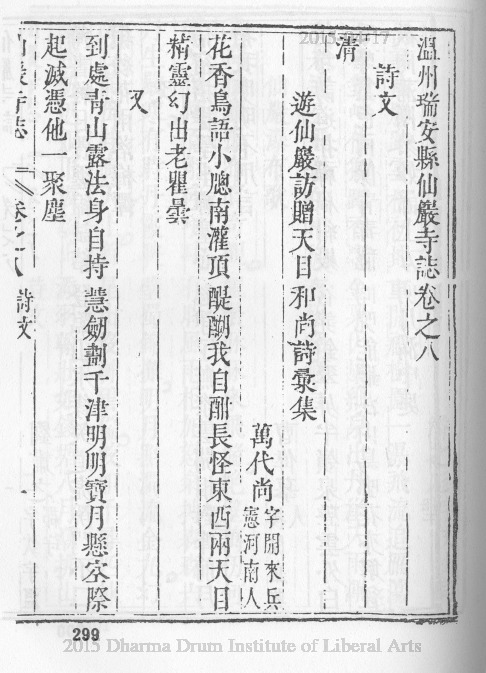 溫州瑞安縣仙巖寺誌卷之八
詩文
清
遊仙巖訪贈天目和尚詩彙集
萬代尚字開來兵憲河南人
花香鳥語小牕南灌頂醍醐我自酣長怪東西兩天目
精靈幻出老瞿曇
又
到處青山露法身自持慧劒劃千津明明寶月懸空際
起滅憑他一聚塵
巖寺誌 卷之八 詩文 一
299
2015 Dharma Drum Institute of Liberal Arts